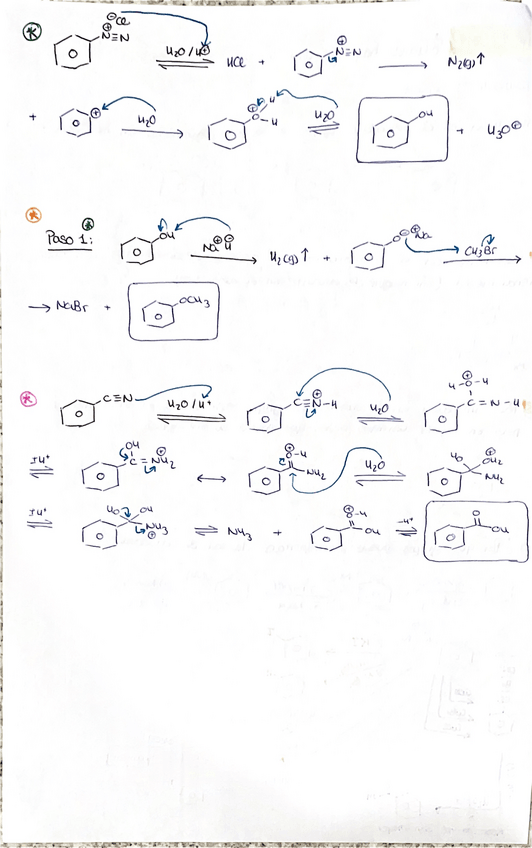 ⊖Cl
⊕N≡N H₂O / H⊕ ⇌ HCl + ⊕N≡N → N₂(g)↑
+ ⊕ H₂O → ⊕O H H H₂O ⇌ OH + H₃O⊕
Paso 1: OH Na⊕ H⊖ → H₂(g)↑ + O⊖ ⊕Na CH₃Br →
→ NaBr + OCH₃
C≡N H₂O / H⁺ ⇌ C≡N⊕-H H₂O ⇌ H-O⊕-H C=N-H
IH⁺ ⇌ OH C=NH₂⊕ ↔ ⊕O-H NH₂ H₂O ⇌ HO ⊕OH₂ NH₂
IH⁺ ⇌ HO OH NH₃⊕ ⇌ NH₃ + ⊕O-H OH -H⁺ ⇌ O OH